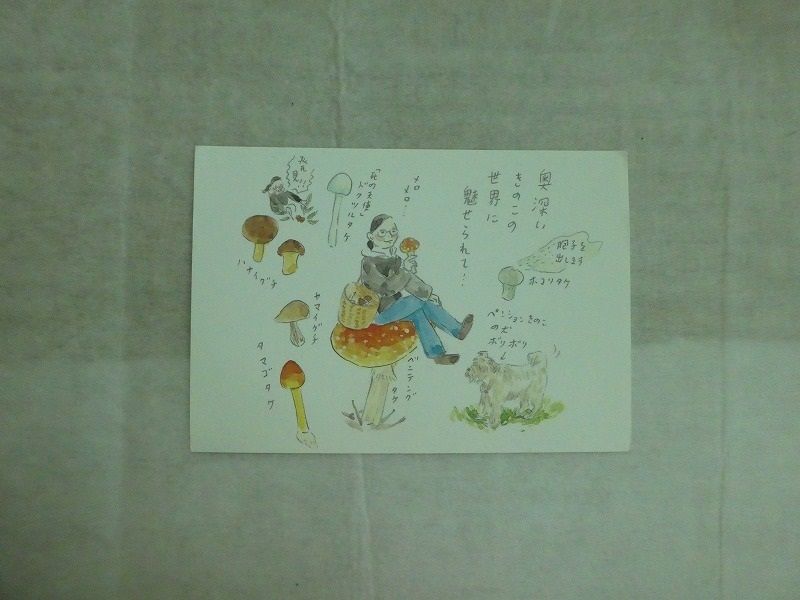 奥深い
きのこの
世界に
魅せられて…
胞子を
出します
ホコリタケ
ペンションきのこ
の犬
ポリポリ
メロ
メロ…
ベニテング
タケ
「死の天使」
ドクツルタケ
ハナイグチ
ヤマイグチ
タマゴタケ